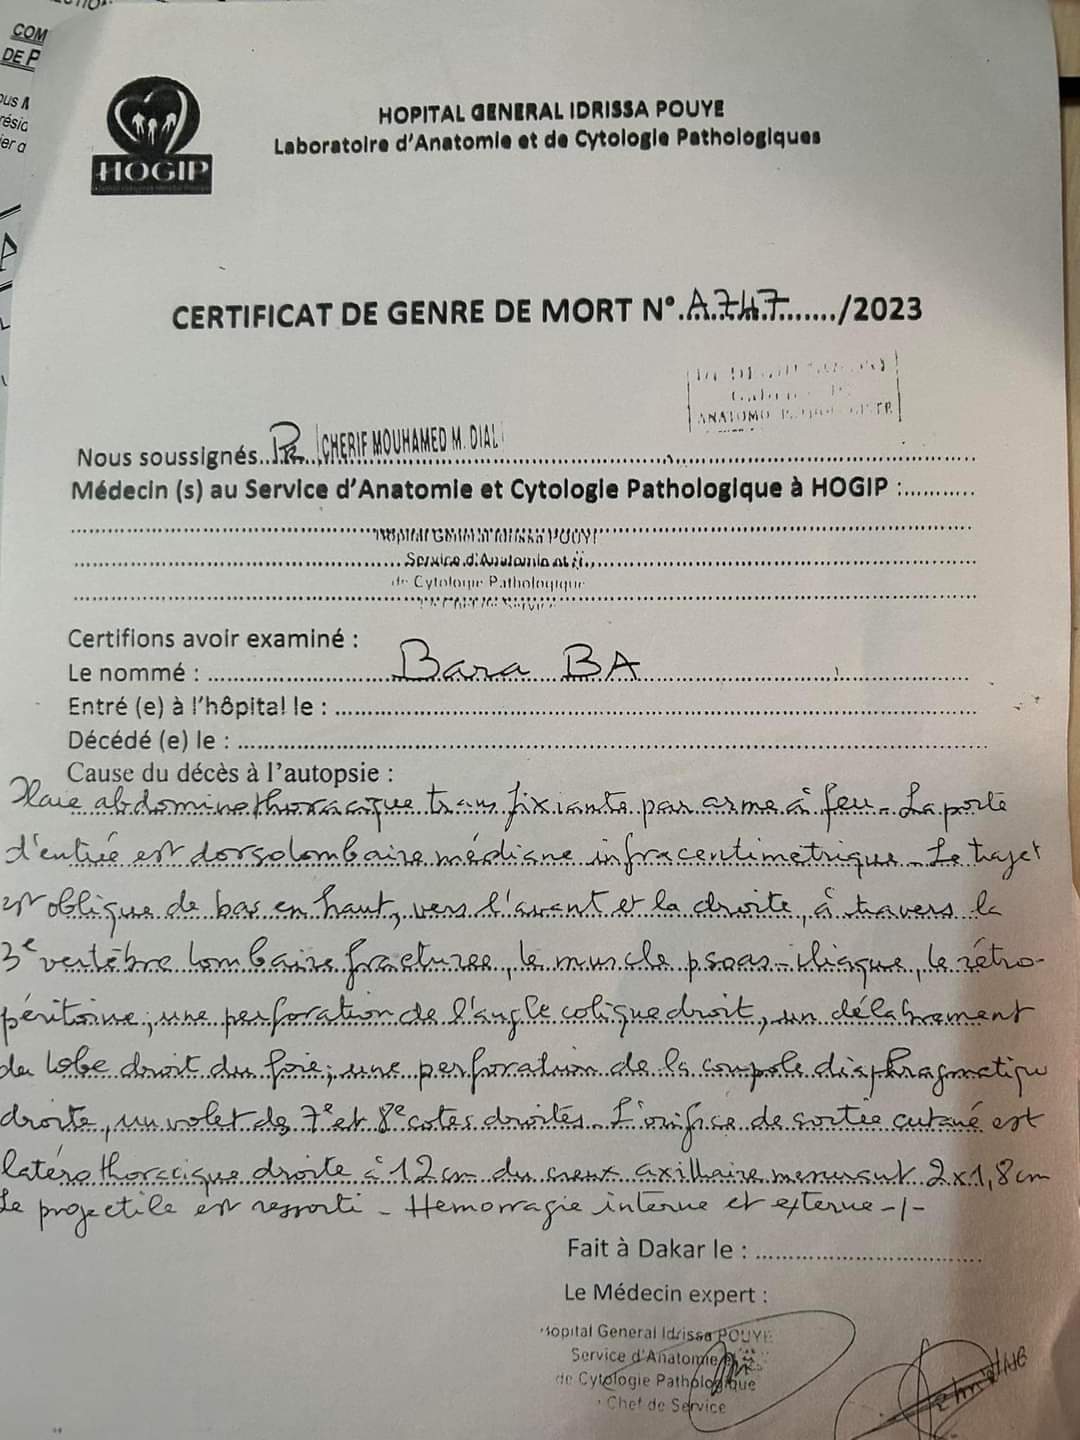 COM
DE P
HOPITAL GENERAL IDRISSA POUYE
Laboratoire d'Anatomie et de Cytologie Pathologiques
HOGIP
CERTIFICAT DE GENRE DE MORT N°.A747......./2023
ANATOMO
Nous soussignés..Pr CHERIF MOUHAMED M. DIAL
Médecin (s) au Service d'Anatomie et Cytologie Pathologique à HOGIP :...........
Hopital General Idrissa POUYE
Service d'Anatomie et
de Cytologie Pathologique
Certifions avoir examiné :
Le nommé : Bara BA
Entré (e) à l'hôpital le :
Décédé (e) le :
Cause du décès à l'autopsie :
Plaie abdominothoracique transfixiante par arme à feu - La porte
d'entrée est dorsolombaire médiane infracentimétrique - Le trajet
est oblique de bas en haut, vers l'avant et la droite, à travers la
3e vertèbre lombaire fracturée, le muscle psoas-iliaque, le rétro-
péritoine, une perforation de l'angle colique droit, un délabrement
du lobe droit du foie, une perforation de la coupole diaphragmatique
droite, un volet des 7e et 8e cotes droites. L'orifice de sortie cutané est
latéro thoracique droite à 12 cm du creux axillaire mesurant 2x1,8cm
Le projectile est ressorti - Hemorragie interne et externe -/-
Fait à Dakar le :
Le Médecin expert :
Hopital General Idrissa POUYE
Service d'Anatomie et
de Cytologie Pathologique
Chef de Service